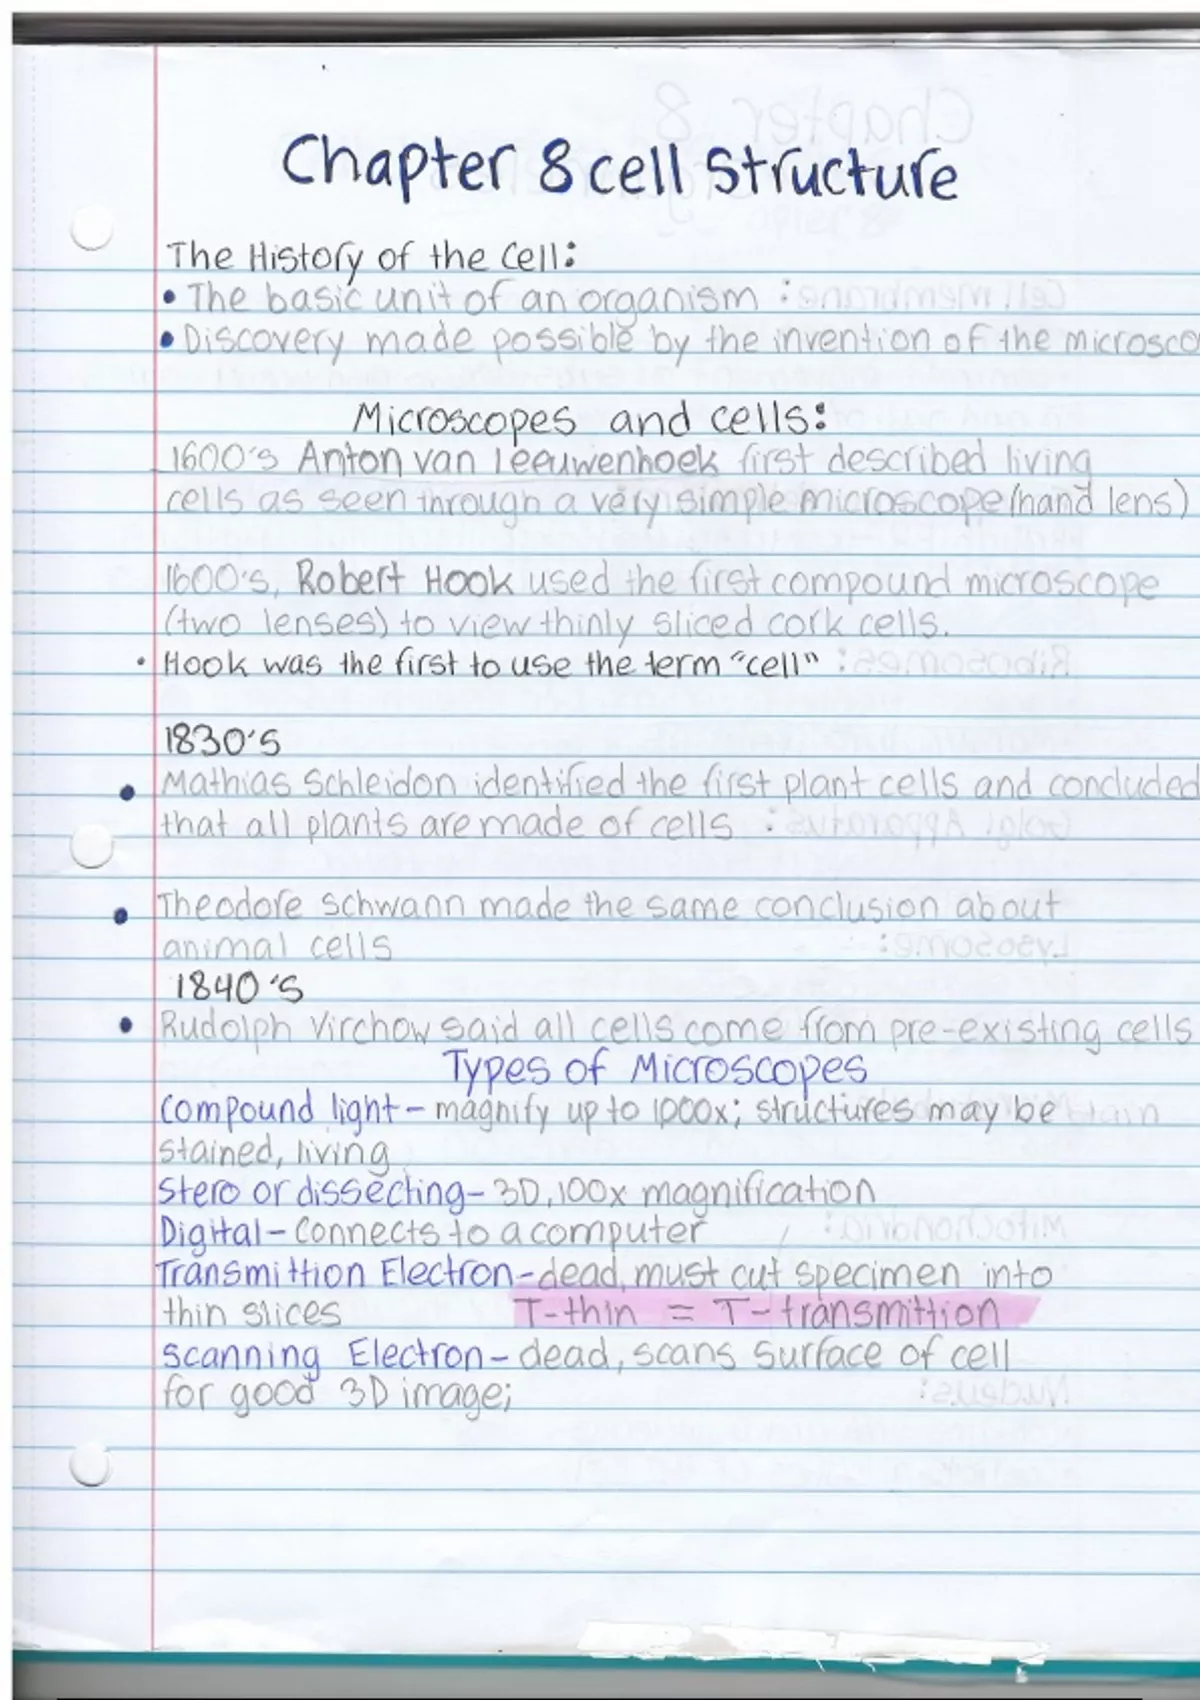 Chapter 8 cell Structure
The History of the Cell:
• The basic unit of an organism
• Discovery made possible by the invention of the microsco
Microscopes and cells:
1600's Anton van leeuwenhoek first described living
cells as seen through a very simple microscope (hand lens)
1600's, Robert Hook used the first compound microscope
(two lenses) to view thinly sliced cork cells.
• Hook was the first to use the term "cell"
1830's
• Mathias Schleidon identified the first plant cells and concluded
that all plants are made of cells
• Theodore Schwann made the same conclusion about
animal cells
1840's
• Rudolph Virchow said all cells come from pre-existing cells
Types of Microscopes
Compound light - magnify up to 1000x; structures may be
stained, living
Stero or dissecting - 3D, 100x magnification
Digital - Connects to a computer
Transmittion Electron - dead, must cut specimen into
thin slices T-thin = T-transmittion
Scanning Electron - dead, scans surface of cell
for good 3D image;